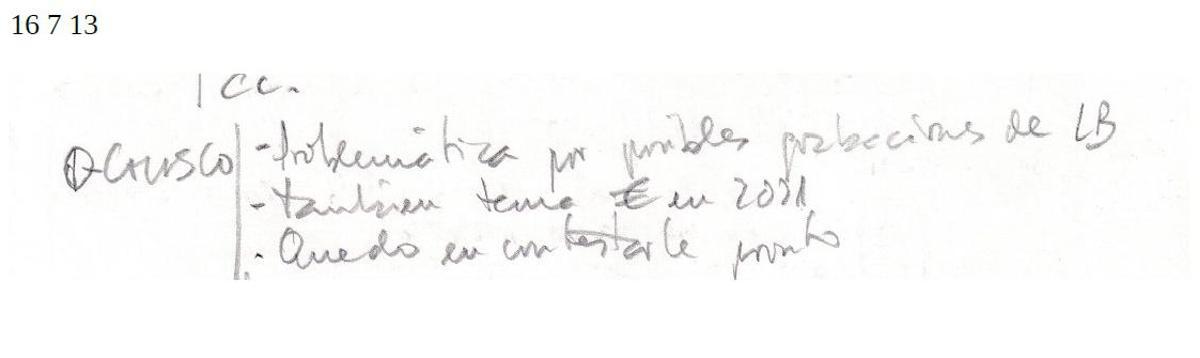 16 7 13
CC.
CALISCO - Problemática por posibles grabaciones de LB
- también tema € en 2021
- Quedo en contestarle pronto